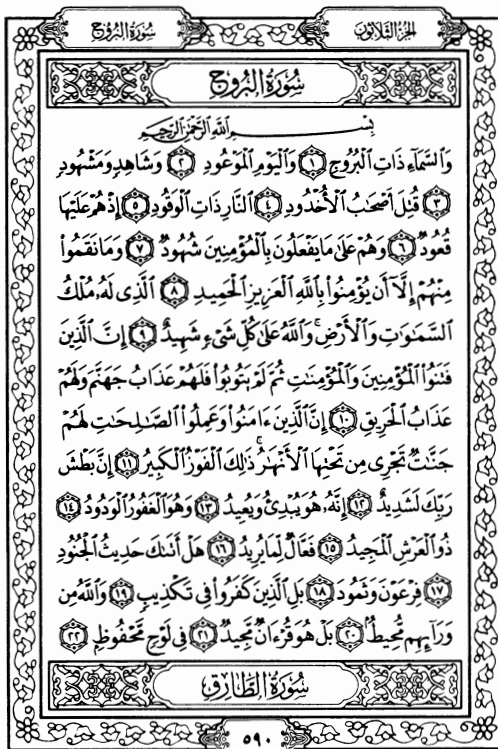 سُورَةُ البُرُوجِ    الجُزْءُ الثَّلَاثُونَ
سُورَةُ البُرُوجِ
بِسْمِ ٱللَّهِ ٱلرَّحْمَٰنِ ٱلرَّحِيمِ
وَٱلسَّمَآءِ ذَاتِ ٱلْبُرُوجِ ١ وَٱلْيَوْمِ ٱلْمَوْعُودِ ٢ وَشَاهِدٍ وَمَشْهُودٍ
٣ قُتِلَ أَصْحَٰبُ ٱلْأُخْدُودِ ٤ ٱلنَّارِ ذَاتِ ٱلْوَقُودِ ٥ إِذْ هُمْ عَلَيْهَا
قُعُودٌ ٦ وَهُمْ عَلَىٰ مَا يَفْعَلُونَ بِٱلْمُؤْمِنِينَ شُهُودٌ ٧ وَمَا نَقَمُوا۟
مِنْهُمْ إِلَّآ أَن يُؤْمِنُوا۟ بِٱللَّهِ ٱلْعَزِيزِ ٱلْحَمِيدِ ٨ ٱلَّذِى لَهُۥ مُلْكُ
ٱلسَّمَٰوَٰتِ وَٱلْأَرْضِ ۚ وَٱللَّهُ عَلَىٰ كُلِّ شَىْءٍ شَهِيدٌ ٩ إِنَّ ٱلَّذِينَ
فَتَنُوا۟ ٱلْمُؤْمِنِينَ وَٱلْمُؤْمِنَٰتِ ثُمَّ لَمْ يَتُوبُوا۟ فَلَهُمْ عَذَابُ جَهَنَّمَ وَلَهُمْ
عَذَابُ ٱلْحَرِيقِ ١٠ إِنَّ ٱلَّذِينَ ءَامَنُوا۟ وَعَمِلُوا۟ ٱلصَّٰلِحَٰتِ لَهُمْ
جَنَّٰتٌ تَجْرِى مِن تَحْتِهَا ٱلْأَنْهَٰرُ ۚ ذَٰلِكَ ٱلْفَوْزُ ٱلْكَبِيرُ ١١ إِنَّ بَطْشَ
رَبِّكَ لَشَدِيدٌ ١٢ إِنَّهُۥ هُوَ يُبْدِئُ وَيُعِيدُ ١٣ وَهُوَ ٱلْغَفُورُ ٱلْوَدُودُ ١٤
ذُو ٱلْعَرْشِ ٱلْمَجِيدُ ١٥ فَعَّالٌ لِّمَا يُرِيدُ ١٦ هَلْ أَتَىٰكَ حَدِيثُ ٱلْجُنُودِ
١٧ فِرْعَوْنَ وَثَمُودَ ١٨ بَلِ ٱلَّذِينَ كَفَرُوا۟ فِى تَكْذِيبٍ ١٩ وَٱللَّهُ مِن
وَرَآئِهِم مُّحِيطٌۢ ٢٠ بَلْ هُوَ قُرْءَانٌ مَّجِيدٌ ٢١ فِى لَوْحٍ مَّحْفُوظٍۭ ٢٢
سُورَةُ الطَّارِقِ
٥٩٠